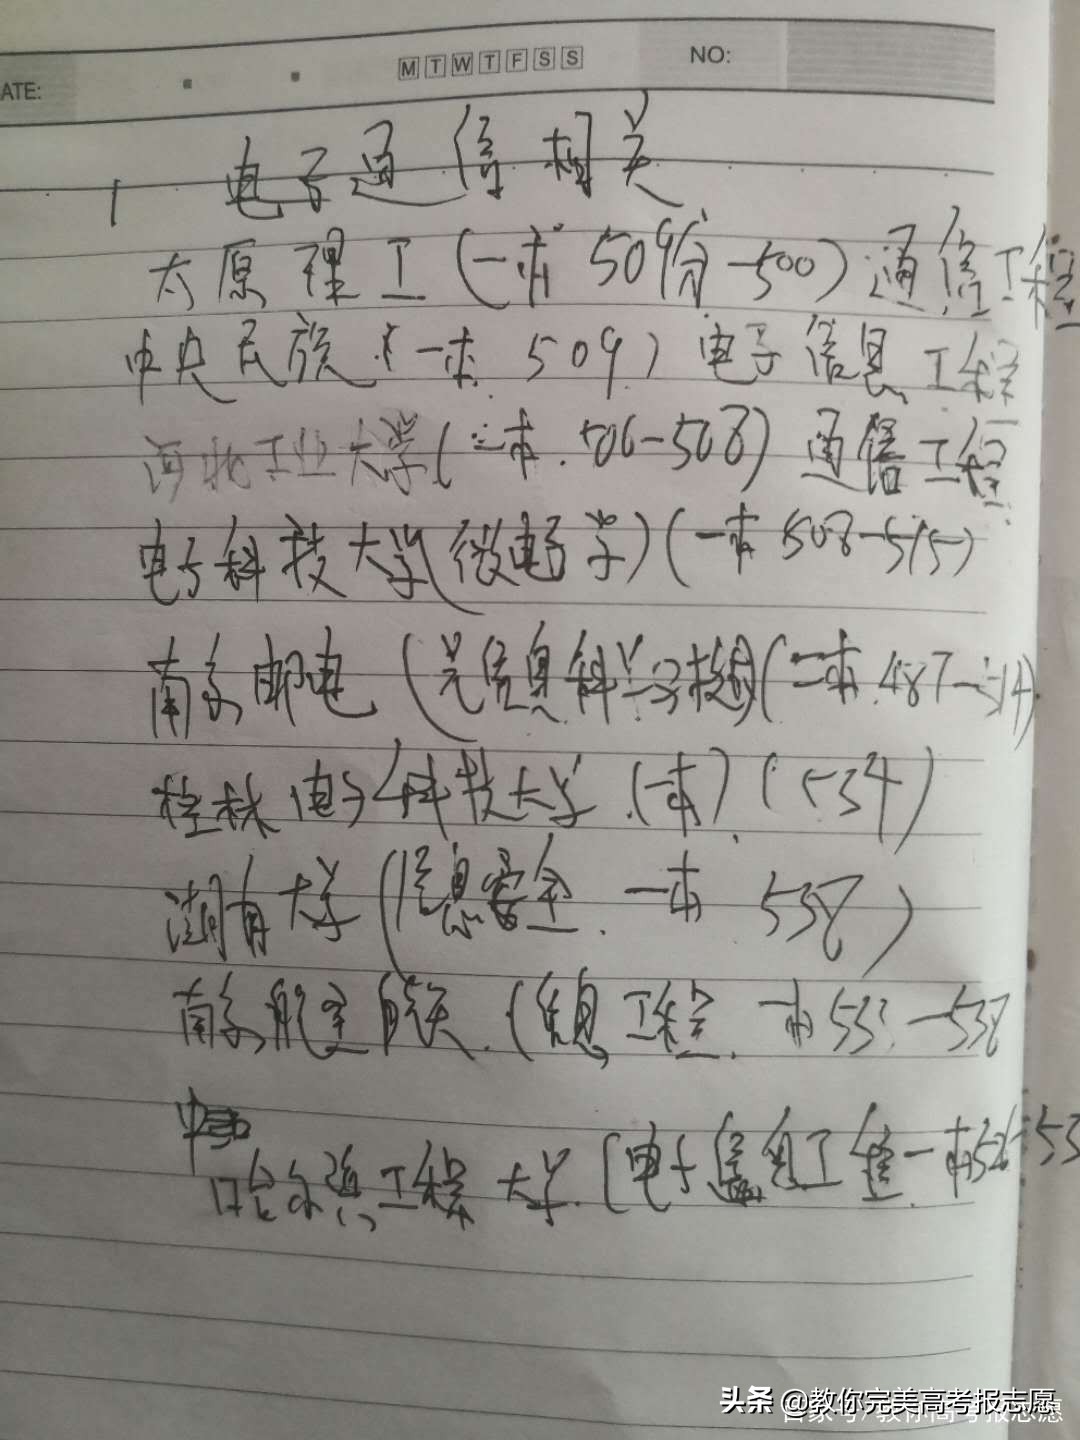 ATE: M T W T F S S NO:
1 电子通信相关
太原理工(一本 509分-500)通信工程
中央民族(一本 509)电子信息工程
河北工业大学(一本.506-508)通信工程
电子科技大学(微电子学)(一本508-515)
南京邮电(光信息科学与技术)(二本.487-514)
桂林电子科技大学.(一本)(534)
湖南大学(信息安全.一本 538)
南京航空航天.(信息工程.一本533-538
哈尔滨工程大学.(电子信息工程一本526-53
头条 @教你完美高考报志愿
百家号/教你高考报志愿